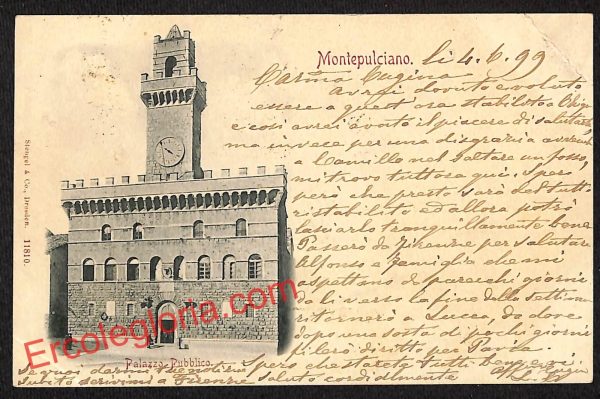 Montepulciano. li 4.6.99
Carma Cugina
avrei dovuto e voluto
essere a quest'ora stabilito a
e così avrei avuto il piacere di salutarti,
ma invece per una disgrazia avvenuta
a Camillo nel saltare un fosso,
mi trovo tuttora qui. Spero
però che presto sarà del tutto
ristabilito ed allora potrò
lasciarlo tranquillamente bene
Passerò da Firenze per salutare
Alfonso famiglia che mi
aspettano da parecchi giorni
da lì verso la fine della settimana
ritornerò a Lucca, da dove
dopo una sosta di pochi giorni
filerò diritto per
Spero che starete tutti bene e vi
saluto cordialmente
darmi tue notizie
subito scrivimi a Firenze
Palazzo Pubblico.
Stengel & Co., Dresden. 11810.
Ercolegloria.com